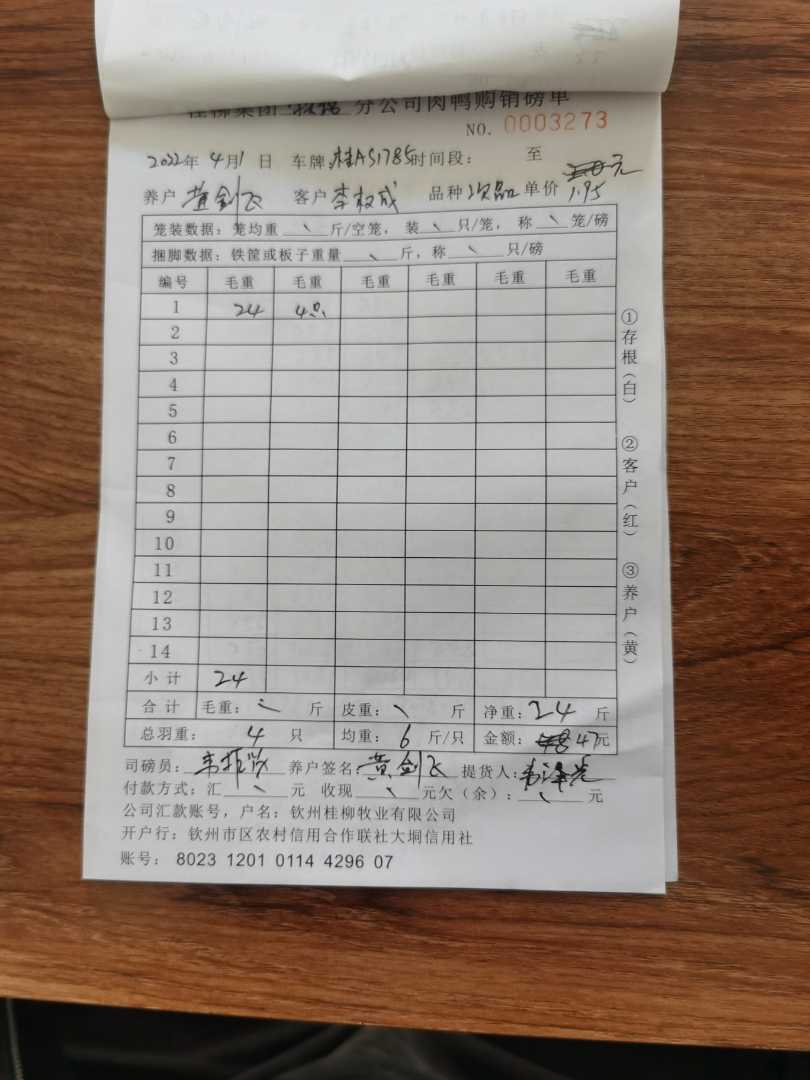 分公司肉鸭购销磅单
NO. 0003273
2022年 4月1日 车牌:桂AS1785 时间段: 至
养户 黄剑飞 客户 李权成 品种 次品 单价 1.95元
笼装数据: 笼均重 斤/空笼, 装 只/笼, 称 笼/磅
捆脚数据: 铁筐或板子重量 斤, 称 只/磅
编号 毛重 毛重 毛重 毛重 毛重 毛重
1 24 4只
2
3
4
5
6
7
8
9
10
11
12
13
14
小计 24
合计 毛重: 斤 皮重: 斤 净重: 24 斤
总羽重: 4 只 均重: 6 斤/只 金额: 47元
司磅员: 养户签名: 黄剑飞 提货人:
付款方式: 汇 元 收现 元欠(余): 元
公司汇款账号, 户名: 钦州桂柳牧业有限公司
开户行: 钦州市区农村信用合作联社大垌信用社
账号: 8023 1201 0114 4296 07
①存根(白) ②客户(红) ③养户(黄)